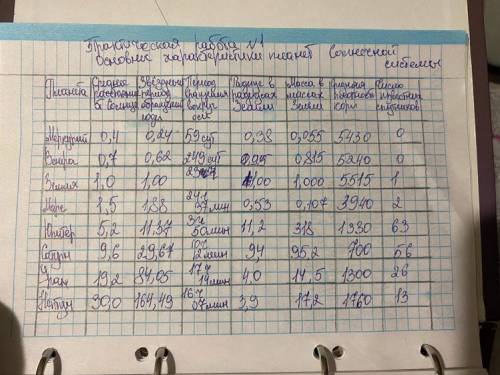 Практическая работа №1
Основные характеристики планет солнечной
системы
Планета Среднее расстояние от Солнца Звёздный период обращения года Период вращения вокруг оси Радиус в радиусах Земли Масса в массах Земли средняя плотность Число спутников
Меркурий 0,4 0,24 59 сут 0,38 0,055 5430 0
Венера 0,7 0,62 0,95 0,815 5240 0
Земля 1,0 1,00 1,00 1,000 5515 1
Марс 1,5 1,88 37 мин 0,53 0,107 3940 2
Юпитер 5,2 11,37 50 мин 11,2 318 1330 63
Сатурн 9,6 29,67 12 мин 94 95,2 700 56
Уран 19,2 84,05 17ч 14 мин 4,0 14,5 1300 26
Нептун 30,0 164,49 16ч 07 мин 3,9 17,2 1760 13